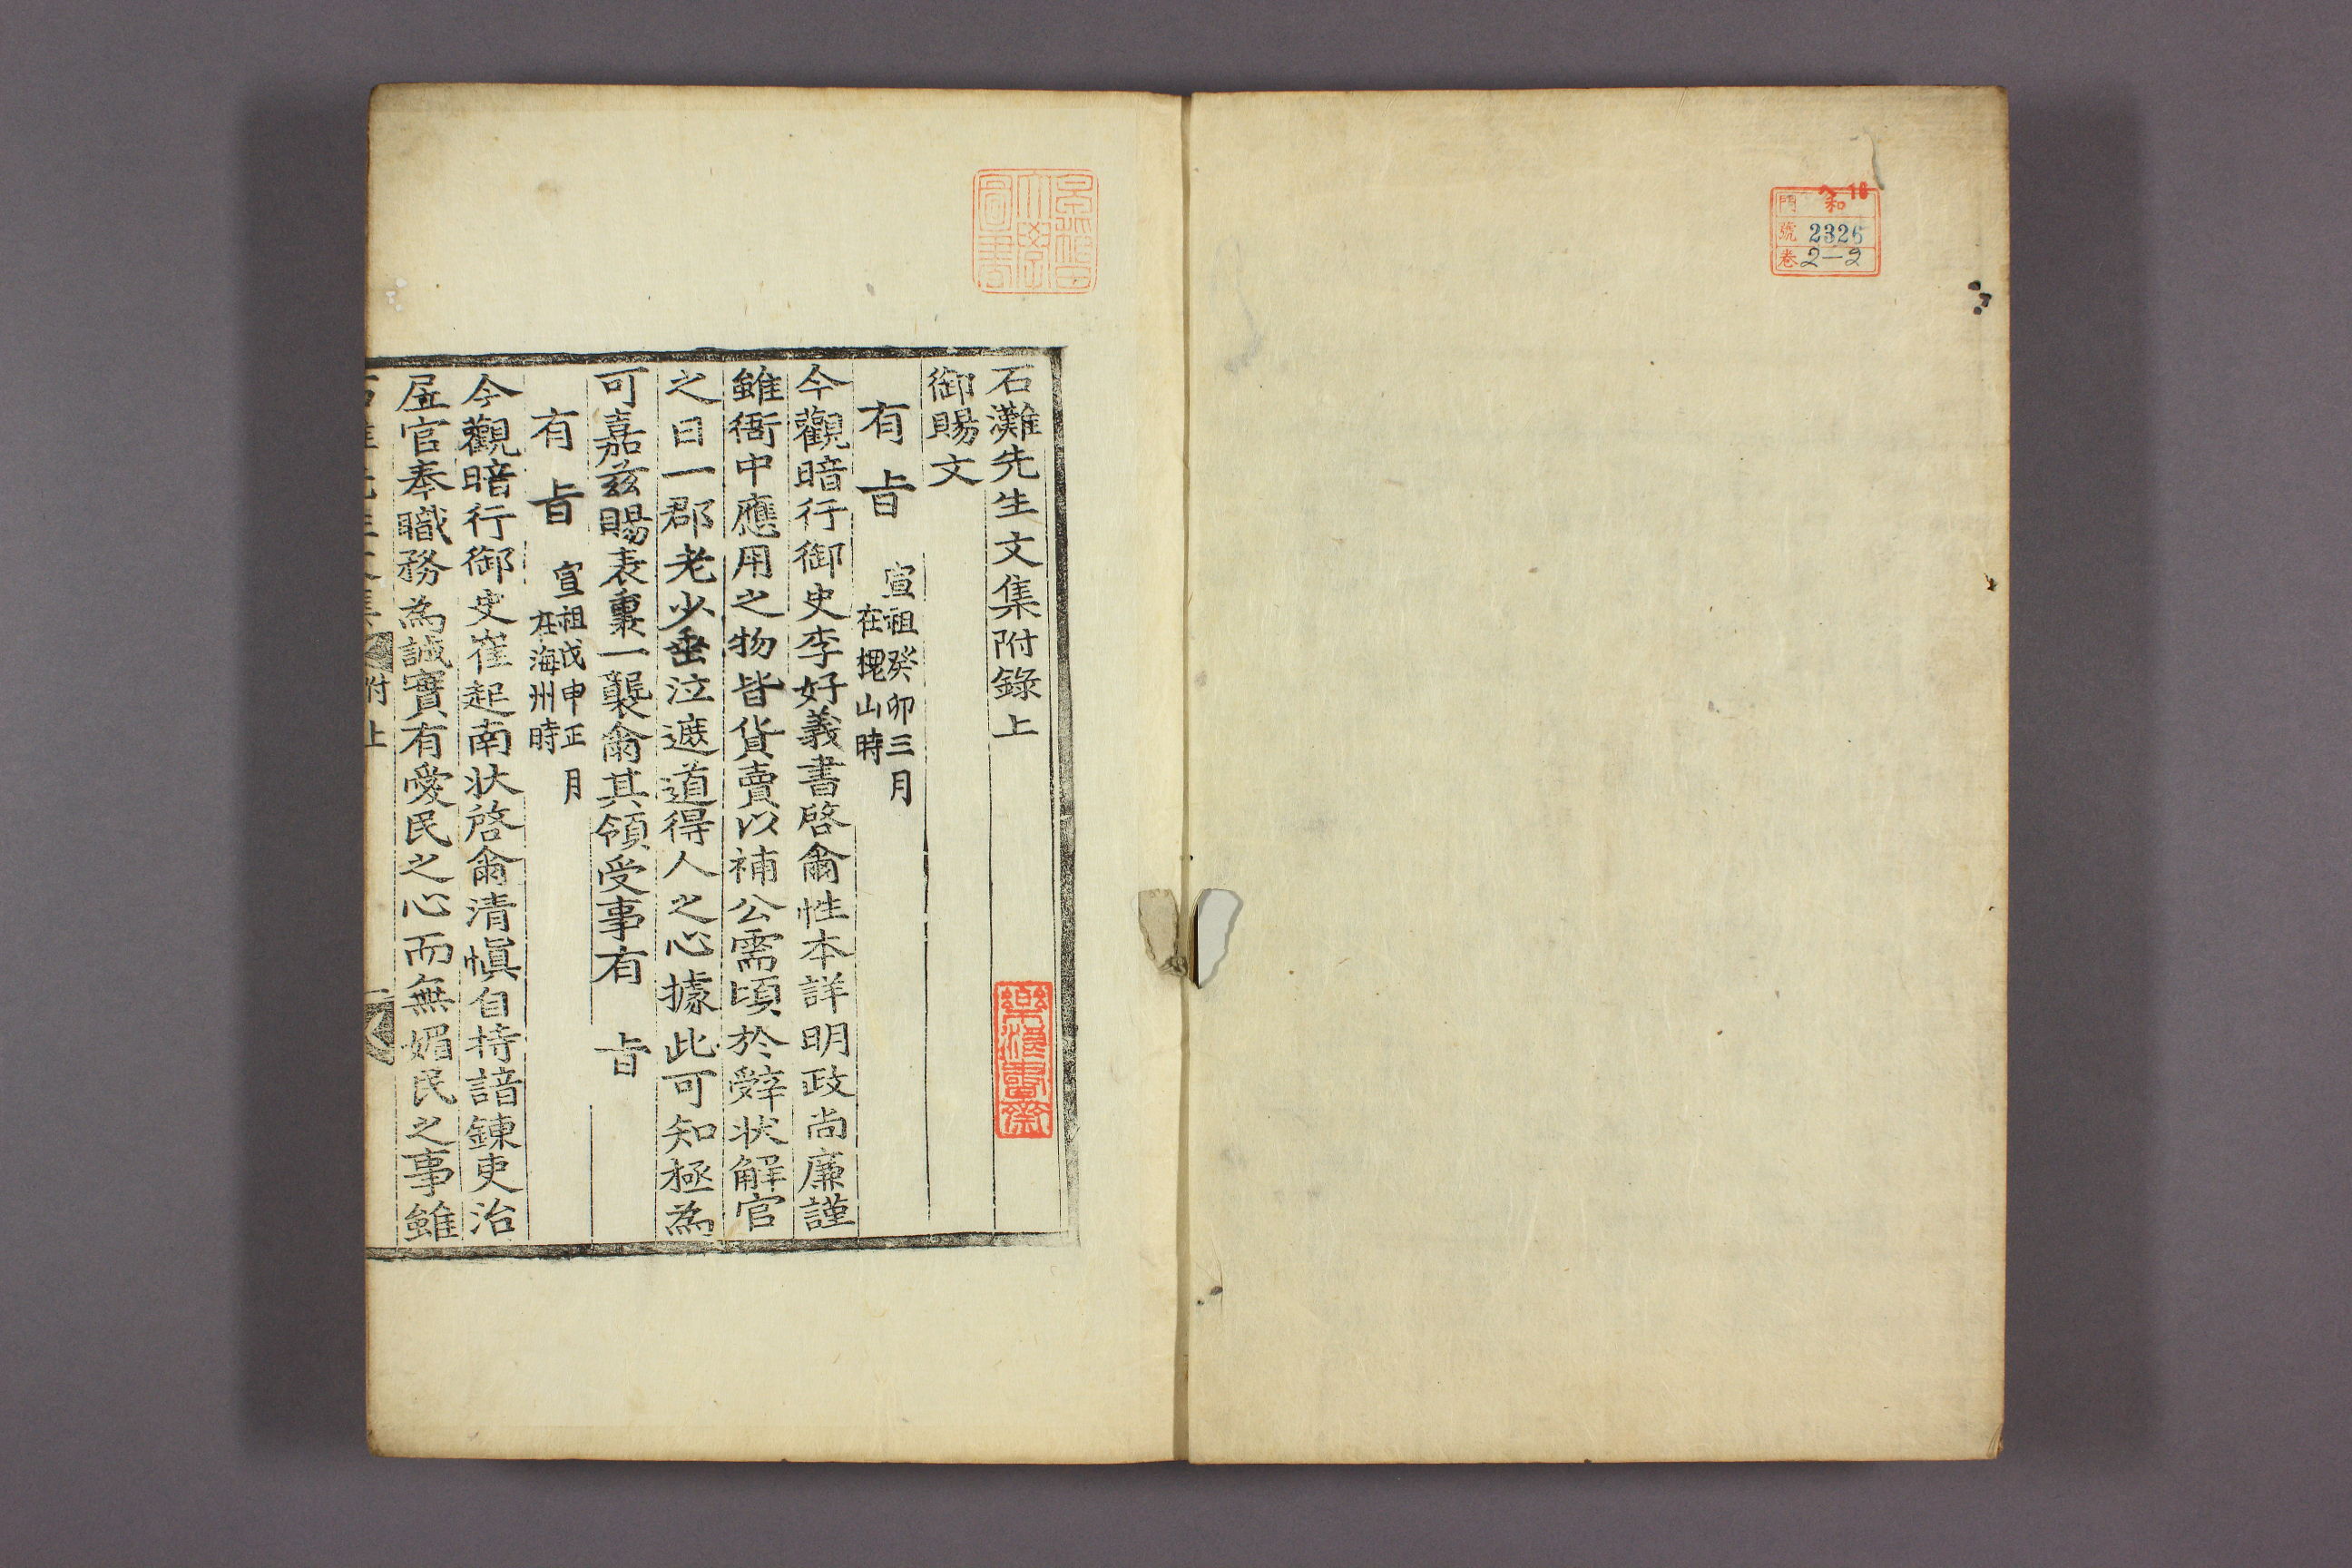 和
10
門
號 2326
卷 2-2
石灘先生文集附錄上
御賜文
有旨 宣祖癸卯三月
在槐山時
今觀暗行御史李好義書啓爾性本詳明政尚廉謹
雖衙中應用之物皆貨賣以補公需頃於辭狀解官
之日一郡老少垂泣遮道得人之心據此可知極為
可嘉兹賜表裏一襲爾其領受事有 旨
有旨 宣祖戊申正月
在海州時
今觀暗行御史崔起南狀啓爾清愼自持諳鍊吏治
居官奉職務為誠實有愛民之心而無媚民之事雖
附上
樂浪書齋